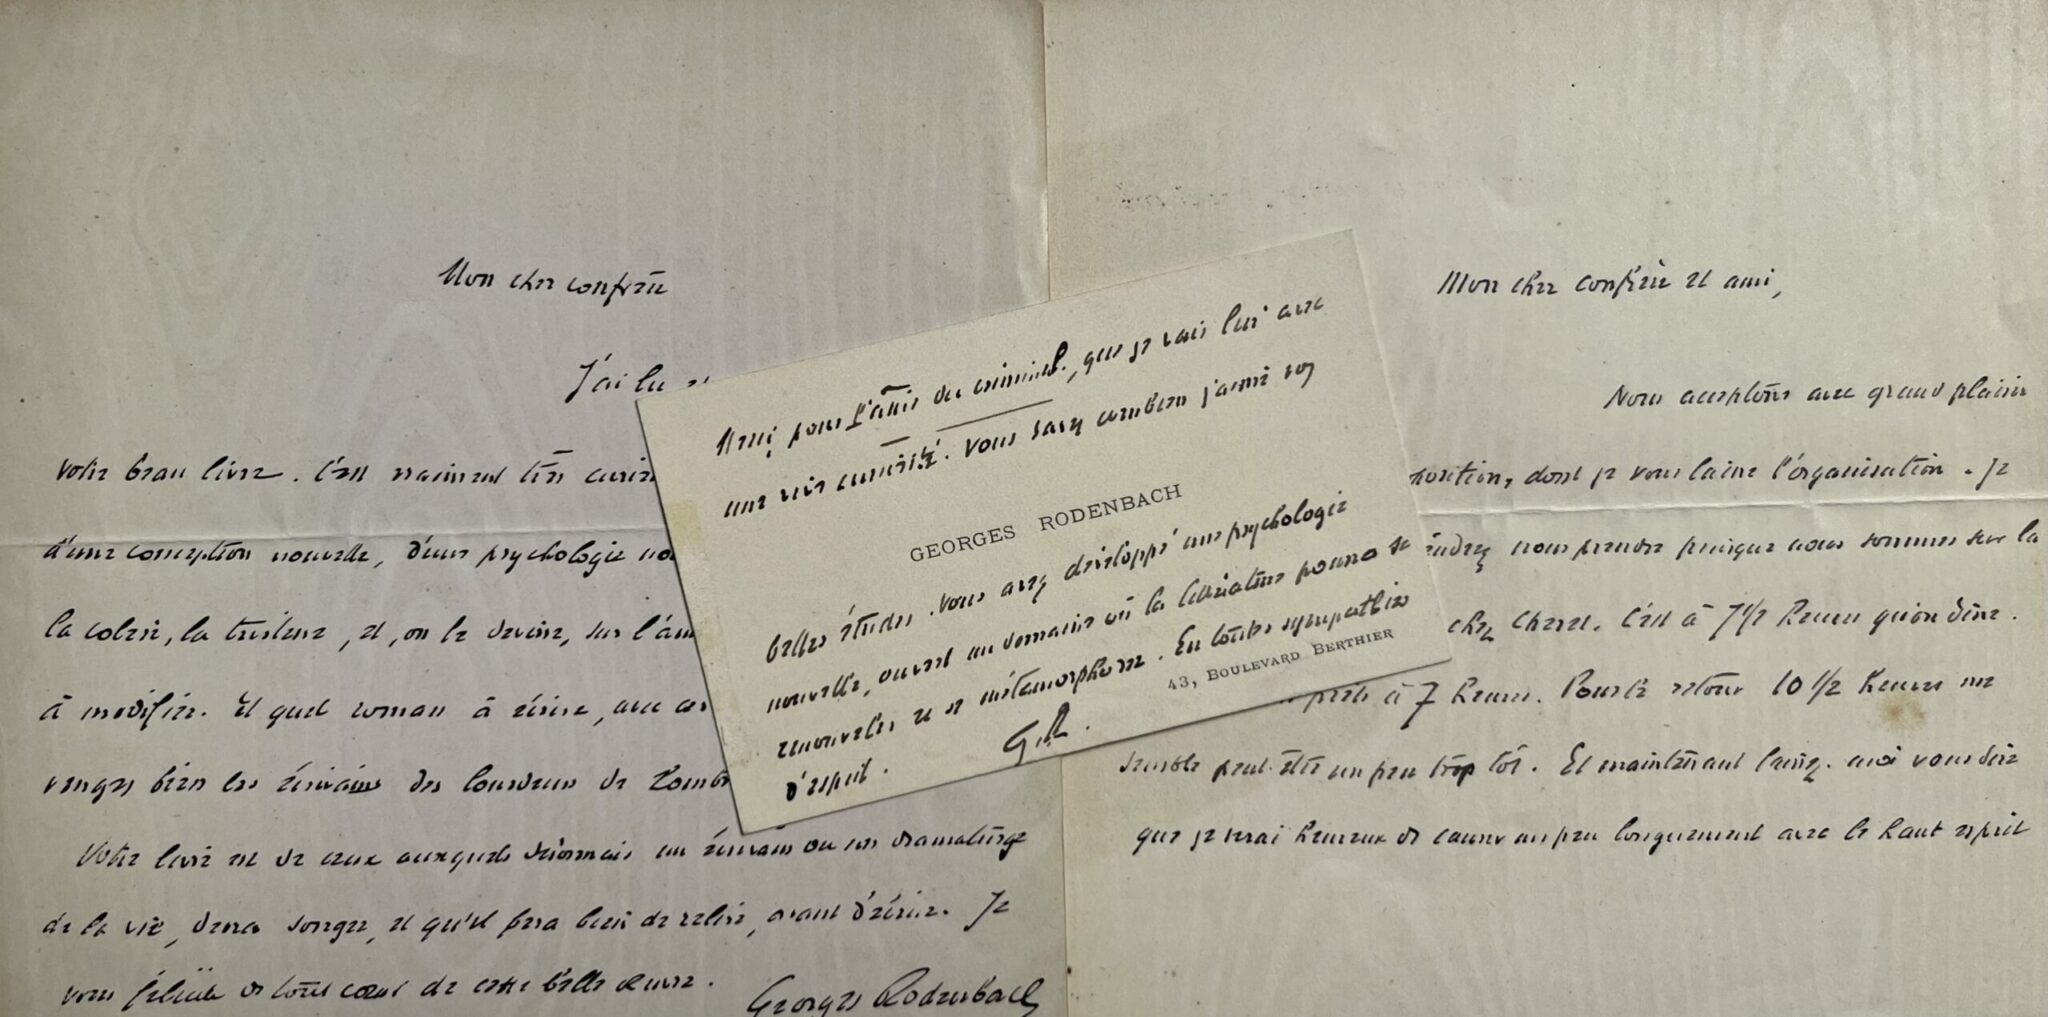 Mon cher confrère
J'ai lu
votre beau livre. C'est vraiment très
d'une conception nouvelle, d'une psychologie
la colère, la tristesse, et, on le devine, sur
à modifier. Et quel roman à écrire, avec
vengez bien les écrivains des lourdeurs de
Votre livre est de ceux auxquels désormais un écrivain ou un dramaturge
de la vie, devra songer, et qu'il fera bien de relire, avant d'écrire. Je
vous félicite de tout cœur de cette belle œuvre.
Georges Rodenbach
Merci pour l'attis du criminel, que je vais lire avec
une vive curiosité. Vous savez combien j'aime vos
GEORGES RODENBACH
belles études. Vous avez développé une psychologie
nouvelle, ouvert un domaine où la littérature pourra se
renouveler et se métamorphoser. En toutes sympathies
d'esprit.
G.R.
43, BOULEVARD BERTHIER
Mon cher confrère et ami,
Nous acceptons avec grand plaisir
dont je vous laisse l'organisation. Je
nous prendre puisque nous sommes sur la
chez Charet. C'est à 7 1/2 heures qu'on dîne.
à 7 heures. Pour le retour 10 1/2 heures me
semble peut-être un peu trop tôt. Et maintenant laissez-moi vous dire
que je serai heureux de causer un peu longuement avec le haut esprit